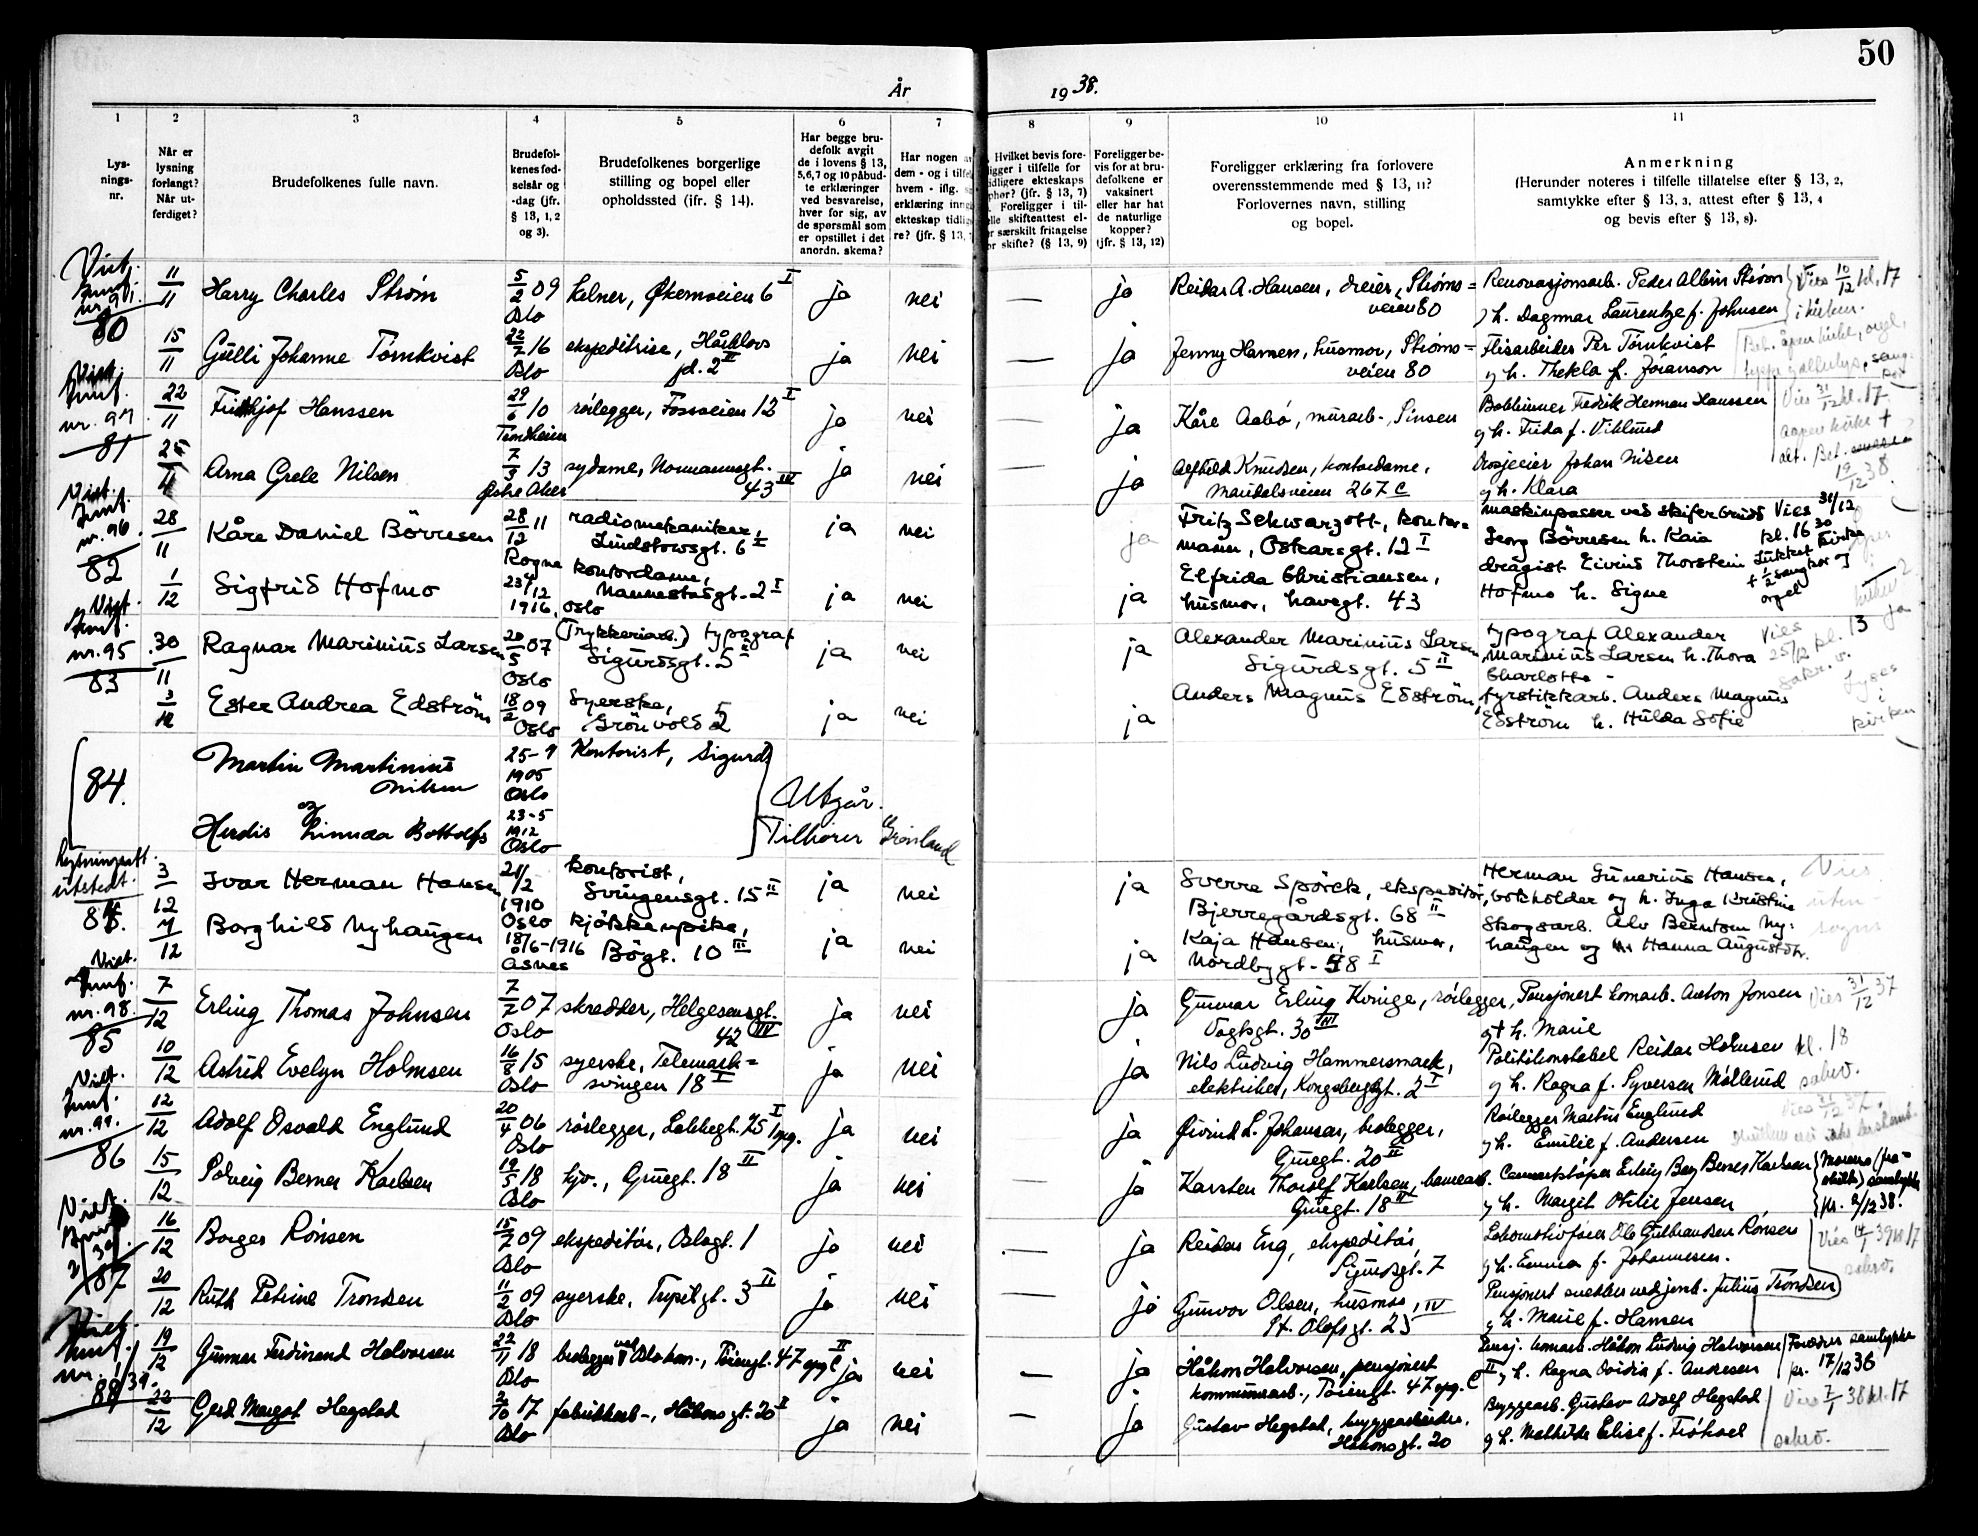 50
År 1938.
1
2
3
4
5
6
7
8
9
10
11
Lys-
nings-
nr.
Når er
lysning
forlangt?
Når ut-
ferdiget?
Brudefolkenes fulle navn.
Brudefol-
kenes fød-
selsår og
-dag (jfr.
§ 13, 1, 2
og 3).
Brudefolkenes borgerlige
stilling og bopel eller
opholdssted (ifr. § 14).
Har begge bru-
defolk avgit
de i lovens § 13,
5,6,7 og 10 påbud-
te erklæringer
ved besvarelse,
hver for sig, av
de spørsmål som
er opstillet i det
anordn. skema?
Har nogen
dem - og i tilf
hvem - iflg.
erklæring inng
ekteskap tidli
re? (jfr. § 13,
Hvilket bevis fore-
ligger i tilfelle for
tidligere ekteskaps
ophør? (jfr. § 13, 7)
Foreligger i til-
elle skifteattest el-
r særskilt fritagelse
or skifte? (§ 13, 9)
Foreligger be-
vis for at bru-
defolkene er
vaksinert
eller har hat
de naturlige
kopper?
(jfr. § 13, 12)
Foreligger erklæring fra forlovere
overensstemmende med § 13, 11?
Forlovernes navn, stilling
og bopel.
Anmerkning
(Herunder noteres i tilfelle tillatelse efter § 13, 2,
samtykke efter § 13, 3, attest efter § 13, 4
og bevis efter § 13, 8).
80
11/11 Harry Charles Strøm 5/2 09 Oslo kelner, Økernveien 6 I ja nei — ja
Reidar A. Hansen, dreier, Strøms=
veien 80
Renovasjonsarb. Peder Albin Strøm
h. Dagmar Laurentze f. Johnsen
Vies 10/12 kl. 17
i kirken.
15/11 Gulli Johanne Törnkvist 22/7 16 Oslo ekspeditrise, Håklovs
pl. 2 II ja nei — ja
Jenny Hansen, husmor, Strøms=
veien 80
Flisarbeider Per Törnkvist
og h. Thekla f. Jöranson
Vist.
nr. 97
81
22/11 Fridhjof Hanssen 29/6 10 Trondheim rörlegger, Fossveien 12 I ja nei — ja
Kåre Aabø, murarb., Sinsen
Fredrik Herman Hanssen
og h. Frida f. Viklund
Vies 31/12 kl. 17
25/11 Arna Grete Nilsen 7/3 13 Østre Aker sydame, Normannsgt.
43 IV ja nei — ja
Alfhild Knudsen, kontordame,
Maridalsveien 267 C
Drosjeeier Johan Nilsen
og h. Klara
19/12 38
nr. 96
82
28/11 Kåre Daniel Börresen 28/12 11 Rogne radiomekaniker,
Lindstowsgt. 6 I ja nei ja
Fritz Schwarzott, kontor=
mann, Oskarsgt. 12 I
maskinpasser ved skiferbrudd
Georg Börresen h. Kaia
Vies 31/12
kl. 16 30
Lukket kirke
1/12 Sigfrid Hofmo 23/12 1916, Oslo kontordame,
Mannestadsgt. 2 I ja nei ja
Elfrida Christiansen,
husmor, Havegt. 43
dragist Eivind Thorstein
Hofmo h. Signe
orgel
Vist.
nr. 95
83
30/11 Ragnar Marinius Larsen 20/5 07 Oslo (Trykkeriarb.) typograf
Sigurdsgt. 5 II ja nei ja
Alexander Marinius Larsen
Sigurdsgt. 5 II
typograf Alexander
Marinius Larsen h. Thora
Charlotte -
Vies
25/12 kl. 13
Ester Andrea Edström 18/2 09 Oslo Syerske,
Grönvold 2 ja nei ja
Anders Magnus Edström,
fyrstikkarb. Anders Magnus
Edström h. Hulda Sofie
Lyses
i
kirken
84.
Martin Martinius
Nilsen 25-9
1905
Oslo
Kontorist, Sigurds
og
Herdis Linnea Bottolfs
23-5
1912
Oslo
Utgår.
Tilhører Grønland
utstedt.
3/12 Ivar Herman Hansen 21/2 1910 Oslo kontorist,
Svingensgt. 15 II ja nei ja
Sverre Spörck, ekspeditör,
Bjerregårdsgt. 68 II
Herman Gunerius Hansen,
bokholder og h. Inga Kristine
Vies
uten-
sogns
7/12 Borghild Nyhaugen 18/6-1916 Åsnes kjökkenpike,
Bögt. 10 III ja nei ja
Kaja Hansen, husmor,
Nordbygt. 58 I
Skogsarb. Alv Berntsen Ny=
haugen og Hanna Augusta
Vist.
nr. 98.
85
7/12 Erling Thomas Johnsen 7/7 07 Oslo skredder, Helgesensgt.
42 IV ja nei — ja
Gunnar Erling Konige, rörlegger,
Vogtsgt. 30 III
Pensjonert komarb. Anton Jonsen
og h. Marie
Vies 31/12 37
kl. 18
10/12 Astrid Evelyn Holmsen 16/8 15 Oslo syerske, Telemark=
svingen 18 I ja nei — ja
Nils Ludvig Hammersmark,
elektriker, Kongsberggt. 2 I
Politikonstabel Reidar Holmsen
og h. Ragna f. Syversen Möllerud
Vist.
nr. 99.
86
12/12 Adolf Osvald Englund 20/4 06 Oslo rörlegger, Lakkegt. 75 I opg. ja nei — ja
Øivind L. Johansen, berlegger,
Gruegt. 20 II
Rörlegger Martin Englund
og h. Emilie f. Andersen
15/12 Solveig Berner Karlsen 19/5 18 Oslo hjv., Gruegt. 18 II ja nei — ja
Karsten Thorolf Karlsen,
Gruegt. 18 II
Cementstöper Erling Berg Berner Karlsen
og h. Margit Otilie Jensen
Morens
samtykke
pr. 2/12 38.
87
16/12 Borger Rönsen 15/7 09 Oslo ekspeditör, Oslogt. 1 ja nei — ja
Reidar Eng, ekspeditör,
Sigurdsgt. 7
Lokomotivfører Ole Gulbrandsen Rönsen
og h. Emma f. Johannesen.
20/12 Ruth Petrine Trondsen 11/2 09 Oslo syerske, Tripilgt. 3 II ja nei — ja
Gunvor Olsen, husmor,
St. Olafsgt. 25 IV
Pensjonert snekker Julius Trondsen
og h. Marie f. Hansen
88
19/12 Gunnar Ferdinand Halvorsen 22/11 18 Oslo berlegger ved Oslo kom., Töiengt. 47 opg. C II ja nei — ja
Håkon Halvorsen, pensjonert
kommunearb., Töiengt. 47 opg. C II
Pensj. komarb. Håkon Ludvig Halvorsen
og h. Ragna Ovidia f. Andresen
Foreldres samtykke
pr. 17/12 36
22/12 Gerd Margot Hegstad 2/10 17 Oslo fabrikkarb., Håkonsgt. 20 I ja nei — ja
Gustav Hegstad, byggearbeider,
Håkonsgt. 20
Byggearb. Gustav Adolf Hegstad
og h. Mathilde Elise f.
Vies 7/1 38 kl. 17